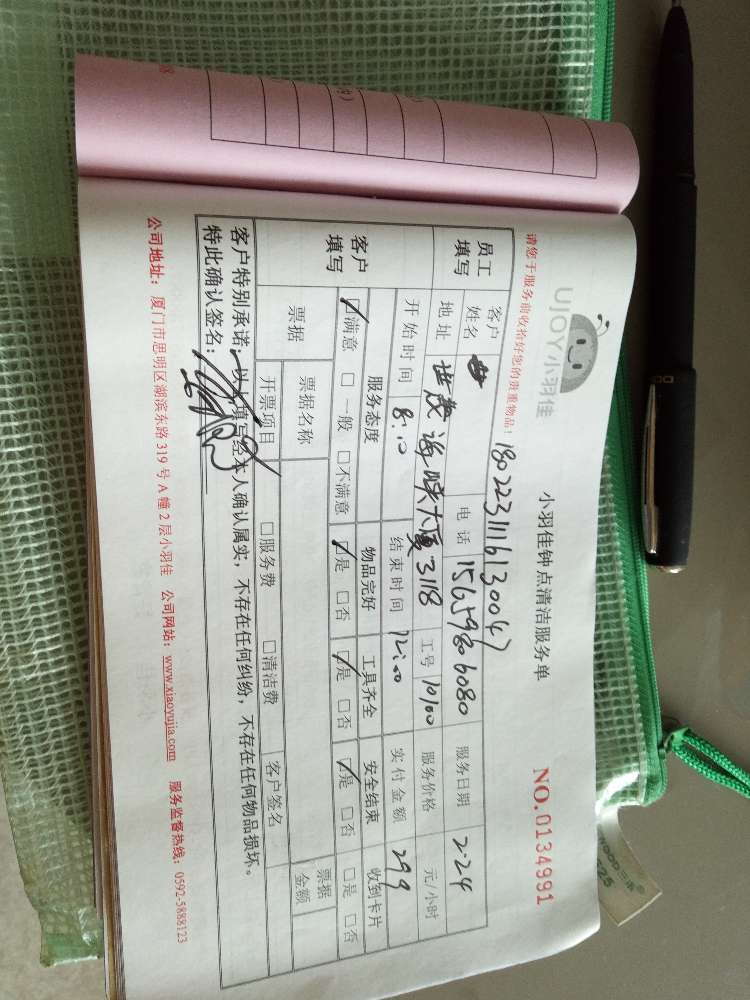 UJOY小羽佳
小羽佳钟点清洁服务单
请您于服务前收拾好您的贵重物品！
NO.0134991
180223111613004
员工填写
客户姓名
电话 15659806080
服务日期 2-24
地址 世茂海峡大厦3118
工号 10100
服务价格 元/小时
客户填写
开始时间 8:10
结束时间 12:00
实付金额 299
服务态度 物品完好 工具齐全 安全结束 收到卡片
☑满意 □一般 □不满意 ☑是 □否 ☑是 □否 ☑是 □否 □是 □否
票据 票据名称 票据金额
开票项目 □服务费 □清洁费 客户签名
客户特别承诺：以上填写经本人确认属实，不存在任何纠纷，不存在任何物品损坏。
特此确认签名：
公司地址：厦门市思明区湖滨东路319号A幢2层小羽佳 公司网站：www.xiaoyujia.com 服务监督热线：0592-5888123